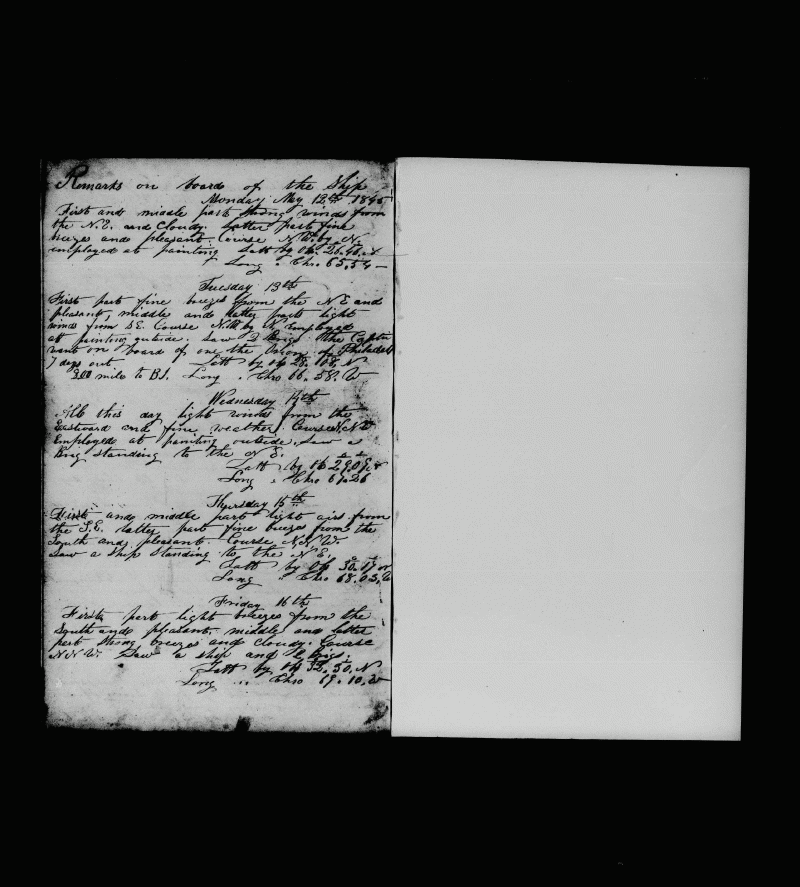 Remarks on board of the Ship
Monday May 12th 1845
First and middle part strong winds from
the N.E. and Cloudy. Latter part fine
breezes and pleasant. Course N.W. by N.
employed at painting Latt by Ob 26.46 N
Long " Chro. 65.54
Tuesday 13th
First part fine breezes from the NE and
pleasant, middle and latter parts light
winds from S.E. Course N.W. by N. employed
at painting outside. Saw 2 Brigs. The Captn
went on board of one the Union of Philadel
7 days out. Latt by Ob 28.108. N
300 miles to B.I. Long " Chro 66.58. W
Wednesday 14th
All this day light winds from the
Eastward and fine weather. Course
Employed at painting outside. Saw a
Brig standing to the N E.
Latt by Ob 29.09 N
Long " Chro 67.26
Thursday 15th
First and middle part light airs from
the S.E. latter part fine breezes from the
South and pleasant Course N.N.W.
Saw a ship standing to the N E.
Latt by Ob 30.17 N
Long " Chro 68.03. W
Friday 16th
First part light breezes from the
South and pleasant, middle and latter
part strong breezes and cloudy. Course
N N W. Saw a ship and Brigs.
Latt by Ob 32.50. N
Long " Chro 69.10. W